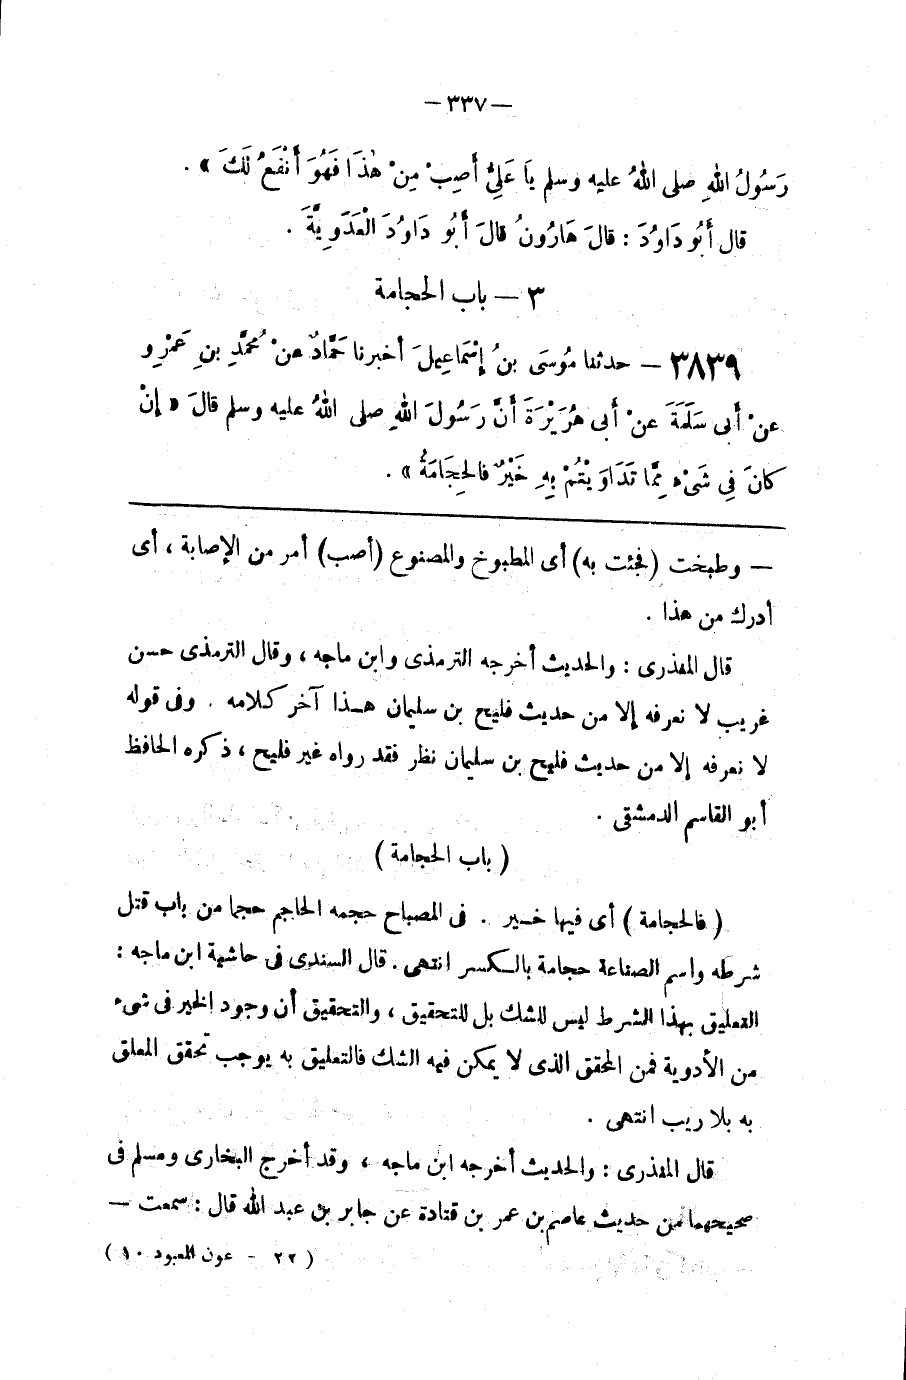 — ٣٣٧ —
رَسُولُ اللهِ صلى اللهُ عليه وسلم يَا عَلِىُّ أَصِبْ مِنْ هٰذَا فَهُوَ أَنْفَعُ لَكَ » .
قال أَبُو دَاوُدَ : قالَ هَارُونُ قالَ أَبُو دَاوُدَ الْعَدَوِيَّةَ .
٣ — باب الحجامة
٣٨٣٩ — حدثنا مُوسَى بنُ إِسْمَاعِيلَ أخبرنا حَمَّادٌ عنْ مُحمَّدِ بنِ عَمْرٍو
عنْ أَبى سَلَمَةَ عنْ أَبى هُرَيْرَةَ أَنَّ رَسُولَ اللهِ صلى اللهُ عليه وسلم قالَ « إِنْ
كانَ فِي شَىْءٍ مِمَّا تَدَاوَيْتُمْ بِهِ خَيْرٌ فالحِجَامَةُ » .
— وطبخت (فجئت به) أى المطبوخ والمصنوع (أصب) أمر من الإصابة ، أى
أدرك من هذا .
قال المنذرى : والحديث أخرجه الترمذى وابن ماجه ، وقال الترمذى حسن
غريب لا نعرفه إلا من حديث فليح بن سليمان هذا آخر كلامه . وفى قوله
لا نعرفه إلا من حديث فليح بن سليمان نظر فقد رواه غير فليح ، ذكره الحافظ
أبو القاسم الدمشقى .
( باب الحجامة )
( فالحجامة ) أى فيها خير . فى المصباح حجمه الحاجم حجما من باب قتل
شرطه واسم الصناعة حجامة بالكسر انتهى . قال السندى فى حاشية ابن ماجه :
التعليق بهذا الشرط ليس للشك بل للتحقيق ، والتحقيق أن وجود الخير فى شىء
من الأدوية فمن المحقق الذى لا يمكن فيه الشك فالتعليق به يوجب تحقق المعلق
به بلا ريب انتهى .
قال المنذرى : والحديث أخرجه ابن ماجه ، وقد أخرج البخارى ومسلم فى
صحيحهما من حديث عاصم بن عمر بن قتادة عن جابر بن عبد الله قال : سمعت —
( ٢٢ - عون المعبود ١٠ )